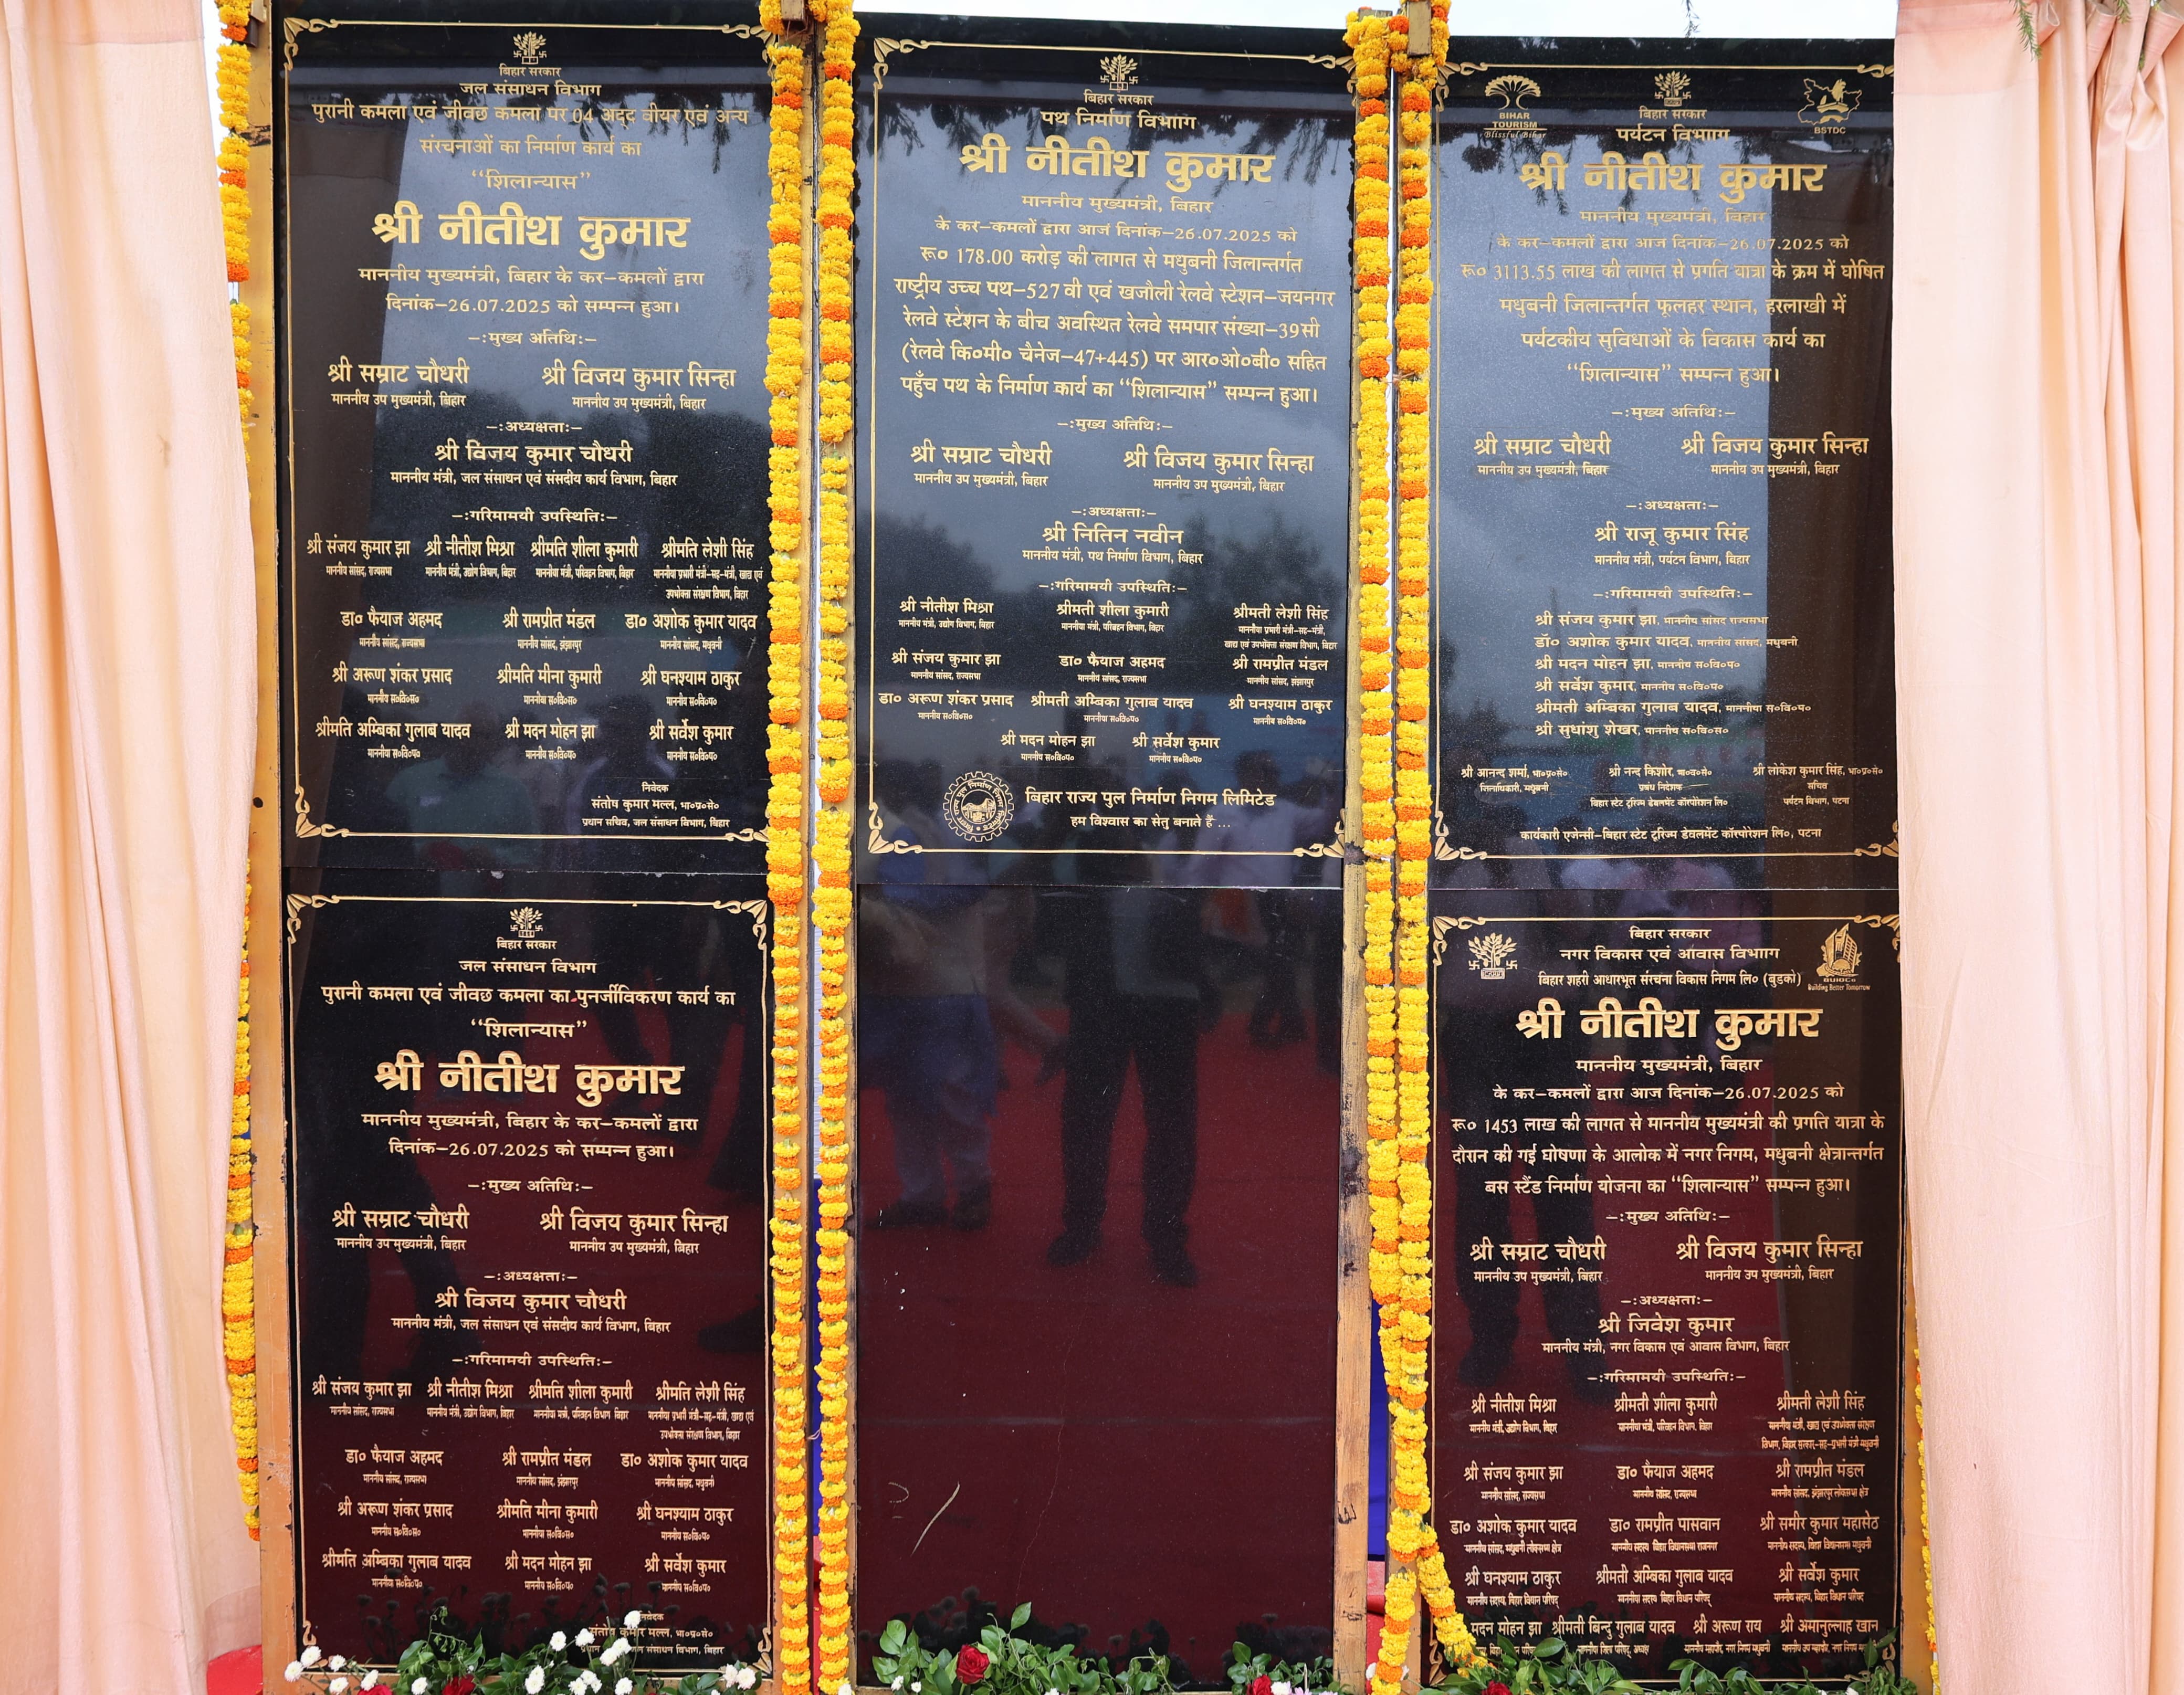 बिहार सरकार
जल संसाधन विभाग
पुरानी कमला एवं जीवछ कमला पर 04 अद्द वीयर एवं अन्य
संरचनाओं का निर्माण कार्य का
“शिलान्यास”
श्री नीतीश कुमार
माननीय मुख्यमंत्री, बिहार के कर–कमलों द्वारा
दिनांक–26.07.2025 को सम्पन्न हुआ।
–:मुख्य अतिथि:–
श्री सम्राट चौधरी श्री विजय कुमार सिन्हा
माननीय उप मुख्यमंत्री, बिहार माननीय उप मुख्यमंत्री, बिहार
–:अध्यक्षता:–
श्री विजय कुमार चौधरी
माननीय मंत्री, जल संसाधन एवं संसदीय कार्य विभाग, बिहार
–:गरिमामयी उपस्थिति:–
श्री संजय कुमार झा श्री नीतीश मिश्रा श्रीमति शीला कुमारी श्रीमति लेशी सिंह
माननीय सांसद, राज्यसभा माननीय मंत्री, उद्योग विभाग, बिहार माननीया मंत्री, परिवहन विभाग, बिहार माननीया प्रभारी मंत्री–सह–मंत्री, खाद्य एवं
उपभोक्ता संरक्षण विभाग, बिहार
डा० फैयाज अहमद श्री रामप्रीत मंडल डा० अशोक कुमार यादव
माननीय सांसद, राज्यसभा माननीय सांसद, झंझारपुर माननीय सांसद, मधुबनी
श्री अरूण शंकर प्रसाद श्रीमति मीना कुमारी श्री घनश्याम ठाकुर
माननीय स०वि०स० माननीया स०वि०स० माननीय स०वि०प०
श्रीमति अम्बिका गुलाब यादव श्री मदन मोहन झा श्री सर्वेश कुमार
माननीया स०वि०प० माननीय स०वि०प० माननीय स०वि०प०
निवेदक
संतोष कुमार मल्ल, भा०प्र०से०
प्रधान सचिव, जल संसाधन विभाग, बिहार
बिहार सरकार
जल संसाधन विभाग
पुरानी कमला एवं जीवछ कमला का पुनर्जीविकरण कार्य का
“शिलान्यास”
श्री नीतीश कुमार
माननीय मुख्यमंत्री, बिहार के कर–कमलों द्वारा
दिनांक–26.07.2025 को सम्पन्न हुआ।
–:मुख्य अतिथि:–
श्री सम्राट चौधरी श्री विजय कुमार सिन्हा
माननीय उप मुख्यमंत्री, बिहार माननीय उप मुख्यमंत्री, बिहार
–:अध्यक्षता:–
श्री विजय कुमार चौधरी
माननीय मंत्री, जल संसाधन एवं संसदीय कार्य विभाग, बिहार
–:गरिमामयी उपस्थिति:–
श्री संजय कुमार झा श्री नीतीश मिश्रा श्रीमति शीला कुमारी श्रीमति लेशी सिंह
माननीय सांसद, राज्यसभा माननीय मंत्री, उद्योग विभाग, बिहार माननीया मंत्री, परिवहन विभाग बिहार माननीया प्रभारी मंत्री–सह–मंत्री, खाद्य एवं
उपभोक्ता संरक्षण विभाग, बिहार
डा० फैयाज अहमद श्री रामप्रीत मंडल डा० अशोक कुमार यादव
माननीय सांसद, राज्यसभा माननीय सांसद, झंझारपुर माननीय सांसद, मधुबनी
श्री अरूण शंकर प्रसाद श्रीमति मीना कुमारी श्री घनश्याम ठाकुर
माननीय स०वि०स० माननीया स०वि०स० माननीय स०वि०प०
श्रीमति अम्बिका गुलाब यादव श्री मदन मोहन झा श्री सर्वेश कुमार
माननीया स०वि०प० माननीय स०वि०प० माननीय स०वि०प०
निवेदक
संतोष कुमार मल्ल, भा०प्र०से०
संसाधन विभाग, बिहार
बिहार सरकार
पथ निर्माण विभााग
श्री नीतीश कुमार
माननीय मुख्यमंत्री, बिहार
के कर–कमलों द्वारा आज दिनांक–26.07.2025 को
रू० 178.00 करोड़ की लागत से मधुबनी जिलान्तर्गत
राष्ट्रीय उच्च पथ–527 वी एवं खजौली रेलवे स्टेशन–जयनगर
रेलवे स्टेशन के बीच अवस्थित रेलवे समपार संख्या–39सी
(रेलवे कि०मी० चैनेज–47+445) पर आर०ओ०बी० सहित
पहुँच पथ के निर्माण कार्य का “शिलान्यास” सम्पन्न हुआ।
–:मुख्य अतिथि:–
श्री सम्राट चौधरी श्री विजय कुमार सिन्हा
माननीय उप मुख्यमंत्री, बिहार माननीय उप मुख्यमंत्री, बिहार
–:अध्यक्षता:–
श्री नितिन नवीन
माननीय मंत्री, पथ निर्माण विभाग, बिहार
–:गरिमामयी उपस्थिति:–
श्री नीतीश मिश्रा श्रीमती शीला कुमारी श्रीमती लेशी सिंह
माननीय मंत्री, उद्योग विभाग, बिहार माननीया मंत्री, परिवहन विभाग, बिहार माननीया प्रभारी मंत्री–सह–मंत्री,
खाद्य एवं उपभोक्ता संरक्षण विभाग, बिहार
श्री संजय कुमार झा डा० फैयाज अहमद श्री रामप्रीत मंडल
माननीय सांसद, राज्यसभा माननीय सांसद, राज्यसभा माननीय सांसद, झंझारपुर
डा० अरूण शंकर प्रसाद श्रीमती अम्बिका गुलाब यादव श्री घनश्याम ठाकुर
माननीय स०वि०स० माननीया स०वि०प० माननीय स०वि०प०
श्री मदन मोहन झा श्री सर्वेश कुमार
माननीय स०वि०प० माननीय स०वि०प०
बिहार राज्य पुल निर्माण निगम लिमिटेड
हम विश्वास का सेतु बनाते हैं ...
BIHAR
TOURISM
Blissful Bihar
BSTDC
बिहार सरकार
पर्यटन विभााग
श्री नीतीश कुमार
माननीय मुख्यमंत्री, बिहार
के कर–कमलों द्वारा आज दिनांक–26.07.2025 को
रू० 3113.55 लाख की लागत से प्रगति यात्रा के क्रम में घोषित
मधुबनी जिलान्तर्गत फूलहर स्थान, हरलाखी में
पर्यटकीय सुविधाओं के विकास कार्य का
“शिलान्यास” सम्पन्न हुआ।
–:मुख्य अतिथि:–
श्री सम्राट चौधरी श्री विजय कुमार सिन्हा
माननीय उप मुख्यमंत्री, बिहार माननीय उप मुख्यमंत्री, बिहार
–:अध्यक्षता:–
श्री राजू कुमार सिंह
माननीय मंत्री, पर्यटन विभाग, बिहार
–:गरिमामयी उपस्थिति:–
श्री संजय कुमार झा, माननीय सांसद राज्यसभा
डॉ० अशोक कुमार यादव, माननीय सांसद, मधुबनी
श्री मदन मोहन झा, माननीय स०वि०प०
श्री सर्वेश कुमार, माननीय स०वि०प०
श्रीमती अम्बिका गुलाब यादव, माननीया स०वि०प०
श्री सुधांशु शेखर, माननीय स०वि०स०
श्री आनन्द शर्मा, भा०प्र०से० श्री नन्द किशोर, भा०व०से० श्री लोकेश कुमार सिंह, भा०प्र०से०
जिलाधिकारी, मधुबनी प्रबंध निदेशक सचिव
बिहार स्टेट टूरिज्म डेवलपमेंट कॉरपोरेशन लि० पर्यटन विभाग, पटना
कार्यकारी एजेन्सी–बिहार स्टेट टूरिज्म डेवलमेंट कॉरपोरेशन लि०, पटना
बिहार सरकार
नगर विकास एवं आवास विभाग
बिहार शहरी आधारभूत संरचना विकास निगम लि० (बुडको)
BUIDCo
Building Better Tomorrow
श्री नीतीश कुमार
माननीय मुख्यमंत्री, बिहार
के कर–कमलों द्वारा आज दिनांक–26.07.2025 को
रू० 1453 लाख की लागत से माननीय मुख्यमंत्री की प्रगति यात्रा के
दौरान की गई घोषणा के आलोक में नगर निगम, मधुबनी क्षेत्रान्तर्गत
बस स्टैंड निर्माण योजना का “शिलान्यास” सम्पन्न हुआ।
–:मुख्य अतिथि:–
श्री सम्राट चौधरी श्री विजय कुमार सिन्हा
माननीय उप मुख्यमंत्री, बिहार माननीय उप मुख्यमंत्री, बिहार
–:अध्यक्षता:–
श्री जिवेश कुमार
माननीय मंत्री, नगर विकास एवं आवास विभाग, बिहार
–:गरिमामयी उपस्थिति:–
श्री नीतीश मिश्रा श्रीमती शीला कुमारी श्रीमती लेशी सिंह
माननीय मंत्री, उद्योग विभाग, बिहार माननीया मंत्री, परिवहन विभाग, बिहार माननीया मंत्री, खाद्य एवं उपभोक्ता संरक्षण
विभाग, बिहार सरकार–सह–प्रभारी मंत्री मधुबनी
श्री संजय कुमार झा डा० फैयाज अहमद श्री रामप्रीत मंडल
माननीय सांसद, राज्यसभा माननीय सांसद, राज्यसभा माननीय सांसद, झंझारपुर लोकसभा क्षेत्र
डा० अशोक कुमार यादव डा० रामप्रीत पासवान श्री समीर कुमार महासेठ
माननीय सांसद, मधुबनी लोकसभा क्षेत्र माननीय सदस्य बिहार विधानसभा राजनगर माननीय सदस्य, बिहार विधानसभा मधुबनी
श्री घनश्याम ठाकुर श्रीमती अम्बिका गुलाब यादव श्री सर्वेश कुमार
माननीय सदस्य, बिहार विधान परिषद् माननीया सदस्य बिहार विधान परिषद् माननीय सदस्य, बिहार विधान परिषद
मदन मोहन झा श्रीमती बिन्दु गुलाब यादव श्री अरूण राय श्री अमानुल्लाह खान